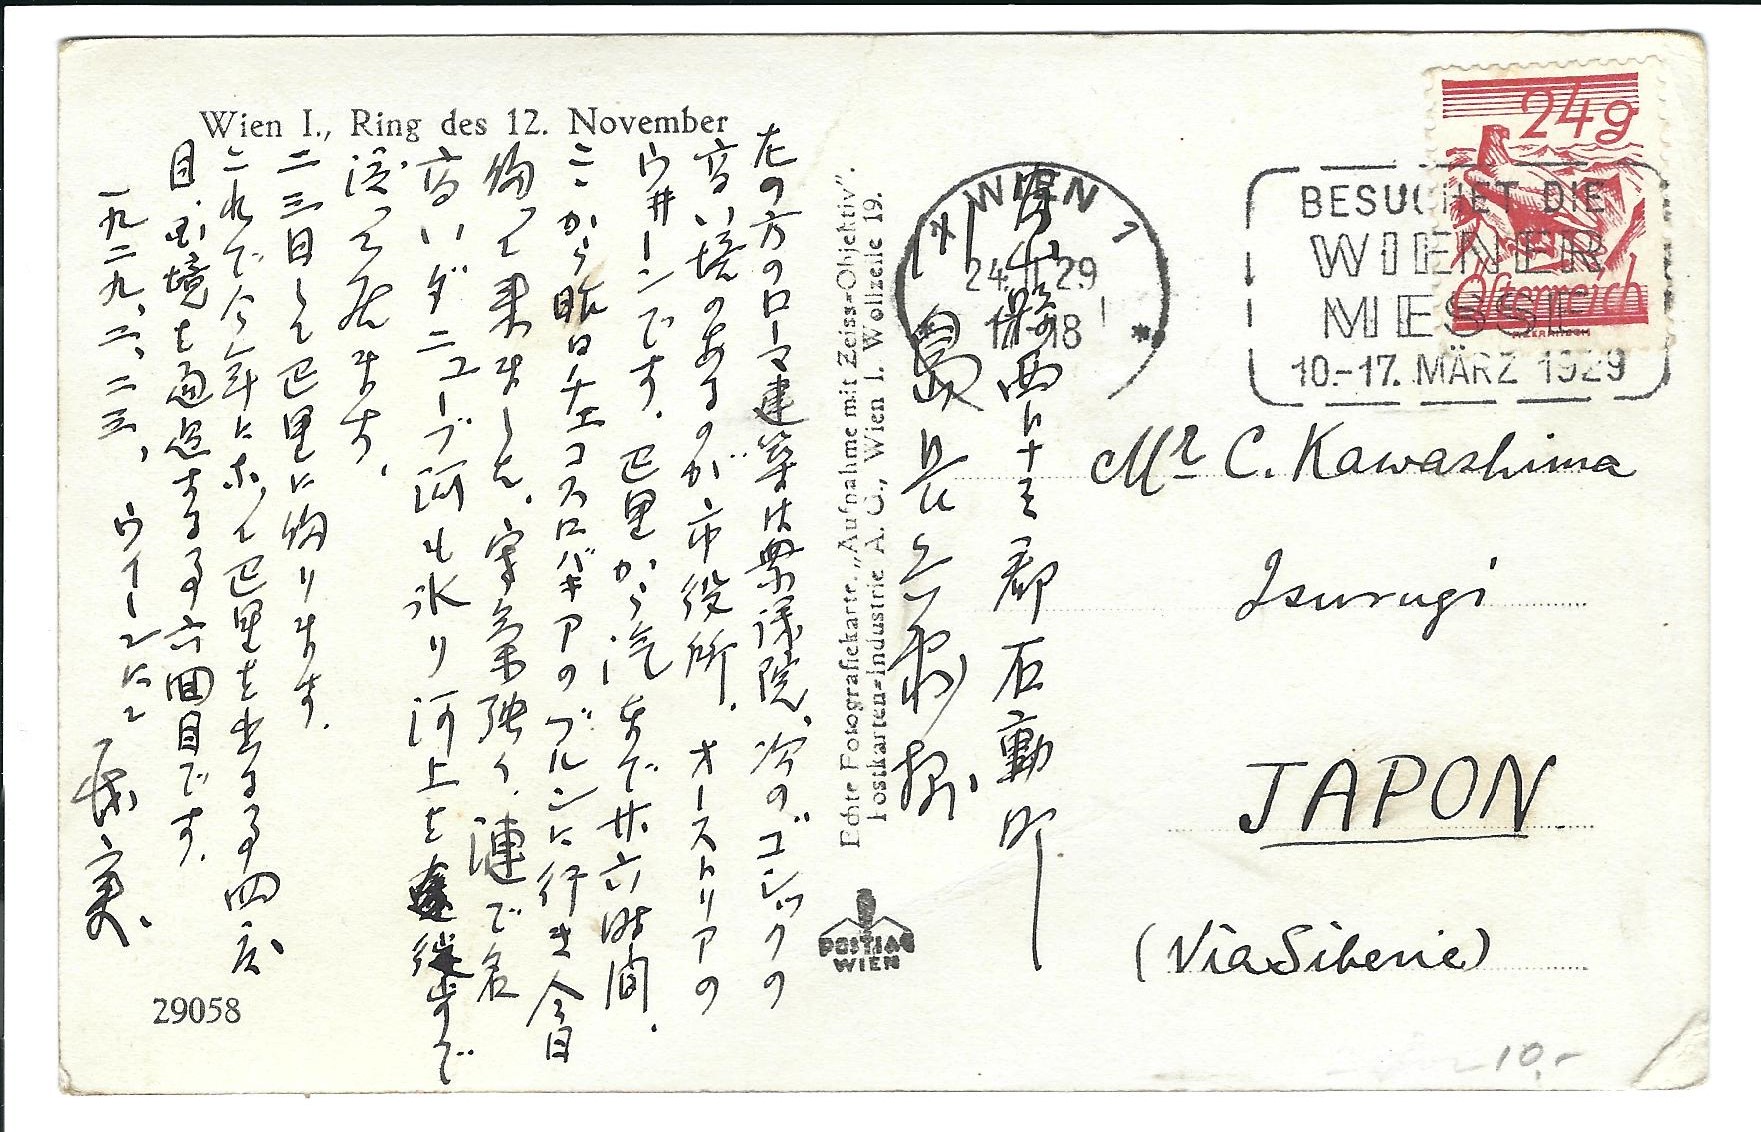 Wien I., Ring des 12. November
左の方のローマ建築は衆議院、次のゴシックの
高い塔のあるのが市役所。オーストリアの
ウヰーンです。巴里から汽車で廿六時間。
ここから昨日チェコスロバキアのブルンに行き今日
帰って来ました。寒気強く、漣で名
高いダニューブ河も氷り河上を
渡って居ます。
二三日して巴里に帰ります。
これで今年になって巴里を出る事四度
目、国境を通過する事六回目です。
一九二九、二、二三、ウイーンにて
29058
Echte Fotografiekarte. „Aufnahme mit Zeiss-Objektiv".
Postkarten-Industrie A. G., Wien I. Wollzeile 19.
POSTIAG
WIEN
富山県西礪波郡石動町
川島長
WIEN
24.II.29
18
BESUCHET DIE
WIENER
MESSE
10.-17. MÄRZ 1929
24g
Österreich
Mr C. Kawashima
Isurugi
JAPON
(Via Siberie)
10.-